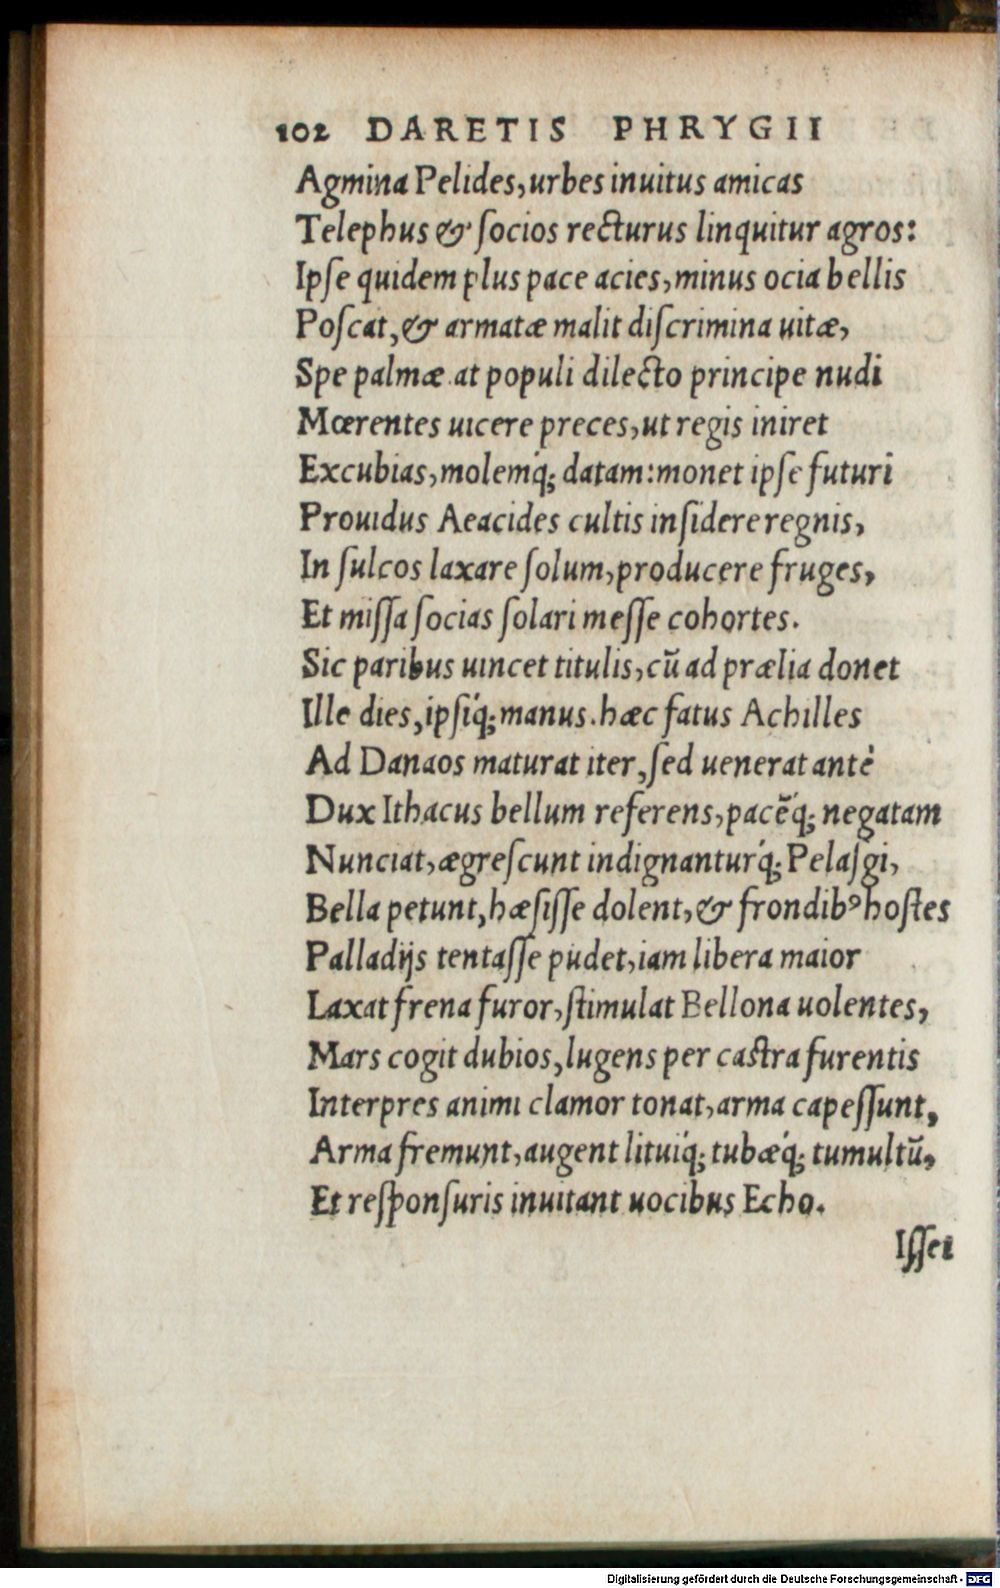 102 DARETIS PHRYGII
Agmina Pelides, urbes inuitus amicas
Telephus & ſocios recturus linquitur agros:
Ipſe quidem plus pace acies, minus ocia bellis
Poſcat, & armatæ malit diſcrimina uitæ,
Spe palmæ. at populi dilecto principe nudi
Mœrentes uicere preces, ut regis iniret
Excubias, molemq́; datam: monet ipſe futuri
Prouidus Aeacides cultis inſidere regnis,
In ſulcos laxare ſolum, producere fruges,
Et miſſa ſocias ſolari meſſe cohortes.
Sic paribus uincet titulis, cū ad prælia donet
Ille dies, ipſiq́; manus. hæc fatus Achilles
Ad Danaos maturat iter, ſed uenerat antè
Dux Ithacus bellum referens, pacēq́; negatam
Nunciat, ægreſcunt indignanturq́; Pelaſgi,
Bella petunt, hæſiſſe dolent, & frondibꝰ hoſtes
Palladijs tentaſſe pudet, iam libera maior
Laxat frena furor, ſtimulat Bellona uolentes,
Mars cogit dubios, lugens per caſtra furentis
Interpres animi clamor tonat, arma capeſſunt,
Arma fremunt, augent lituiq́; tubæq́; tumultū,
Et reſponſuris inuitant uocibus Echo.
Iſſet
Digitalisierung gefördert durch die Deutsche Forschungsgemeinschaft - DFG